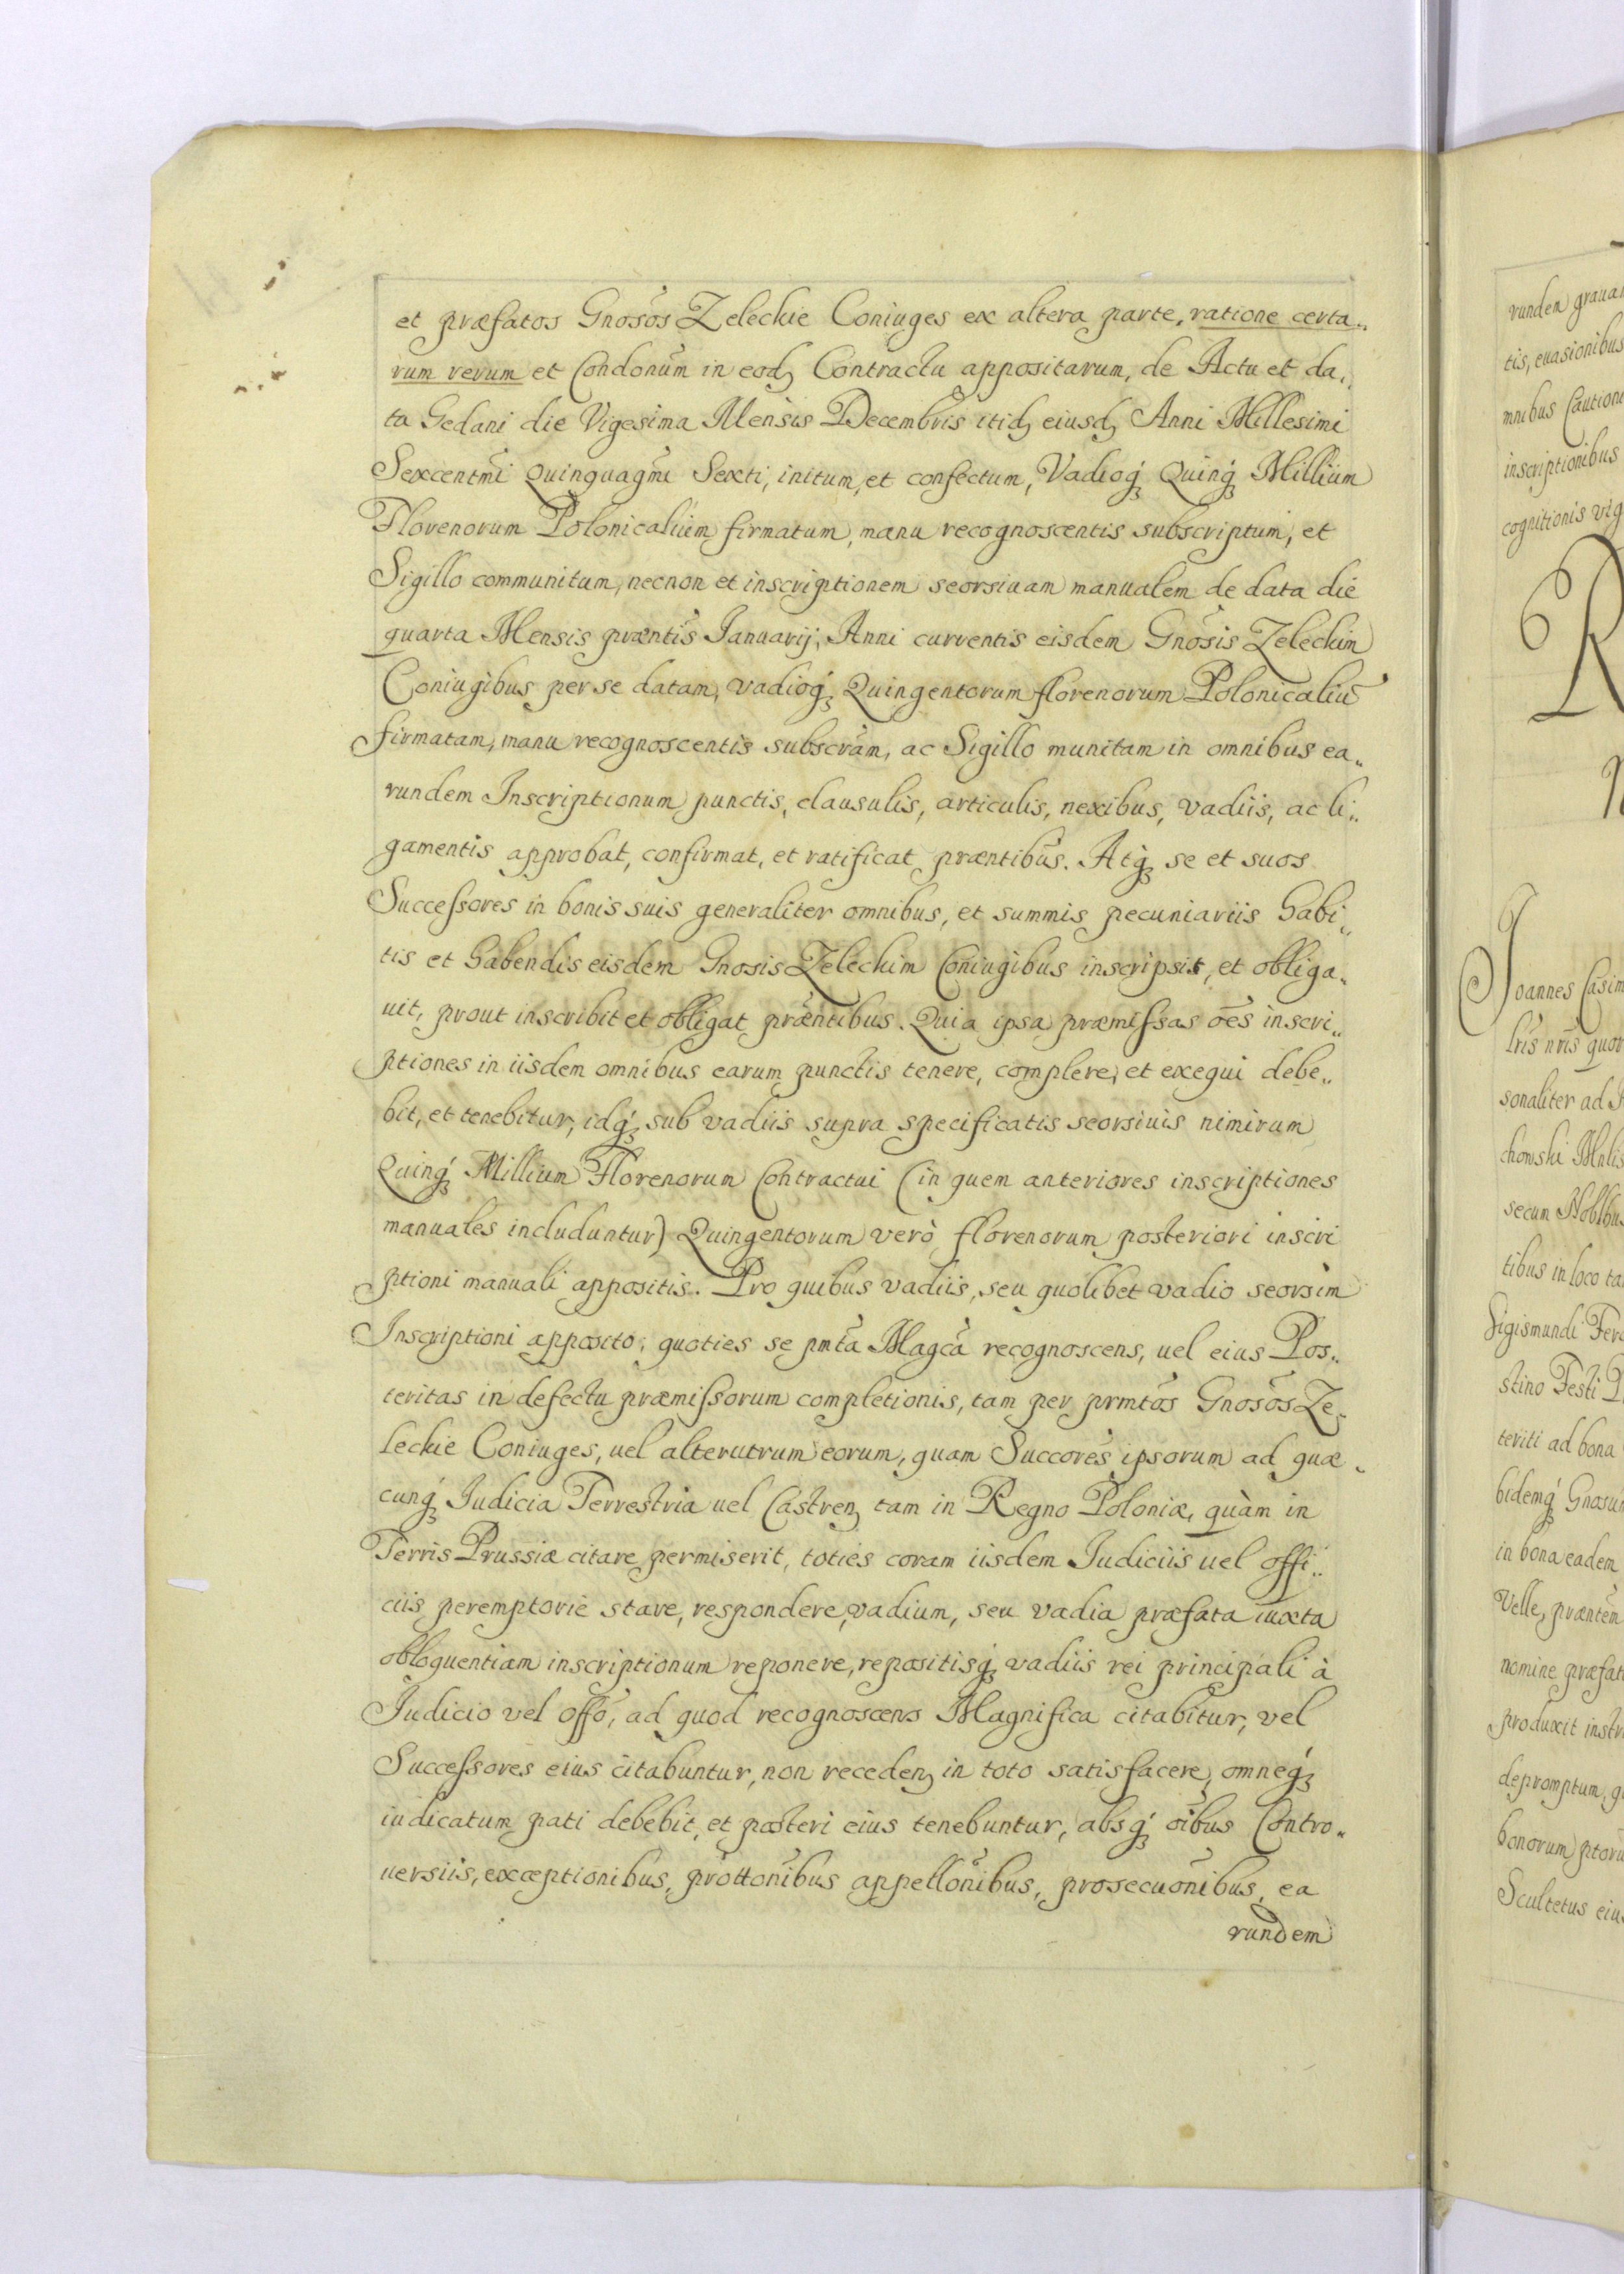 et præfatos Gnosos Zeleckie Coniuges ex altera parte, ratione certa..
rum rerum et Condonum in eodȝ Contractu appositarum, de Actu et da..
ta Gedani die Vigesima Mensis Decembris itidȝ eiusdȝ Anni Millesimi
Sexcentmi Quinquagmi Sexti, initum, et confectum, Vadioqȝ Quinqȝ Millium
Florenorum Polonicalium firmatum, manu recognoscentis subscriptum, et
Sigillo communitum, necnon et inscriptionem seorsiuam manualem de data die
quarta Mensis præntis Ianuarij, Anni currentis eisdem Gnosis Zeleckim
Coniugibus per se datam, vadioqȝ Quingentorum florenorum Polonicaliū
firmatam, manu recognoscentis subscram, ac Sigillo munitam in omnibus ea..
rundem Inscriptionum punctis, clausulis, articulis, nexibus, vadiis, ac li..
gamentis approbat, confirmat, et ratificat præntibus. Atqȝ se et suos
Successores in bonis suis generaliter omnibus, et summis pecuniariis habi..
tis et habendis eisdem Gnosis Zeleckim Coniugibus inscripsit, et obliga..
uit, prout inscribit et obligat præntibus. Quia ipsa præmissas oēs inscri..
ptiones in iisdem omnibus earum punctis tenere, complere, et exequi debe..
bit, et tenebitur, idqȝ sub vadiis supra specificatis seorsiuis nimirum
Quinqȝ Millium Florenorum Contractui (in quem anteriores inscriptiones
manuales includuntur) Quingentorum verò florenorum posteriori inscri
ptioni manuali appositis. Pro quibus vadiis, seu quolibet vadio seorsim
Inscriptioni apposito, quoties se pmta Magca recognoscens, uel eius Pos..
teritas in defectu præmissorum completionis, tam per prmtos Gnosos Ze..
leckie Coniuges, uel alterutrum eorum, quam Succores ipsorum ad quæ..
cunqȝ Iudicia Terrestria uel Castrenȝ tam in Regno Poloniæ, quàm in
Terris Prussiæ citare permiserit, toties coram iisdem Iudiciis uel offi..
ciis peremptorie stare, respondere, vadium, seu vadia præfata iuxta
obloquentiam inscriptionum reponere, repositisqȝ vadiis rei principali à
Iudicio vel offo, ad quod recognoscens Magnifica citabitur, vel
Successores eius citabuntur, non recedenȝ in toto satisfacere, omneqȝ
iudicatum pati debebit, et posteri eius tenebuntur, absqȝ oibus Contro..
uersiis, exceptionibus, prottonibus appellonibus, prosecuonibus, ea
rundem
runden
tis, euasionibus
mnibus
inscriptionibus
cognitionis
R
Joannes
sonaliter ad
secum
tibus in loco
Sigismundi
teriti ad bona
in bona eadem
Velle,
nomine
produxit
depromptum,
bonorum
Scultetus